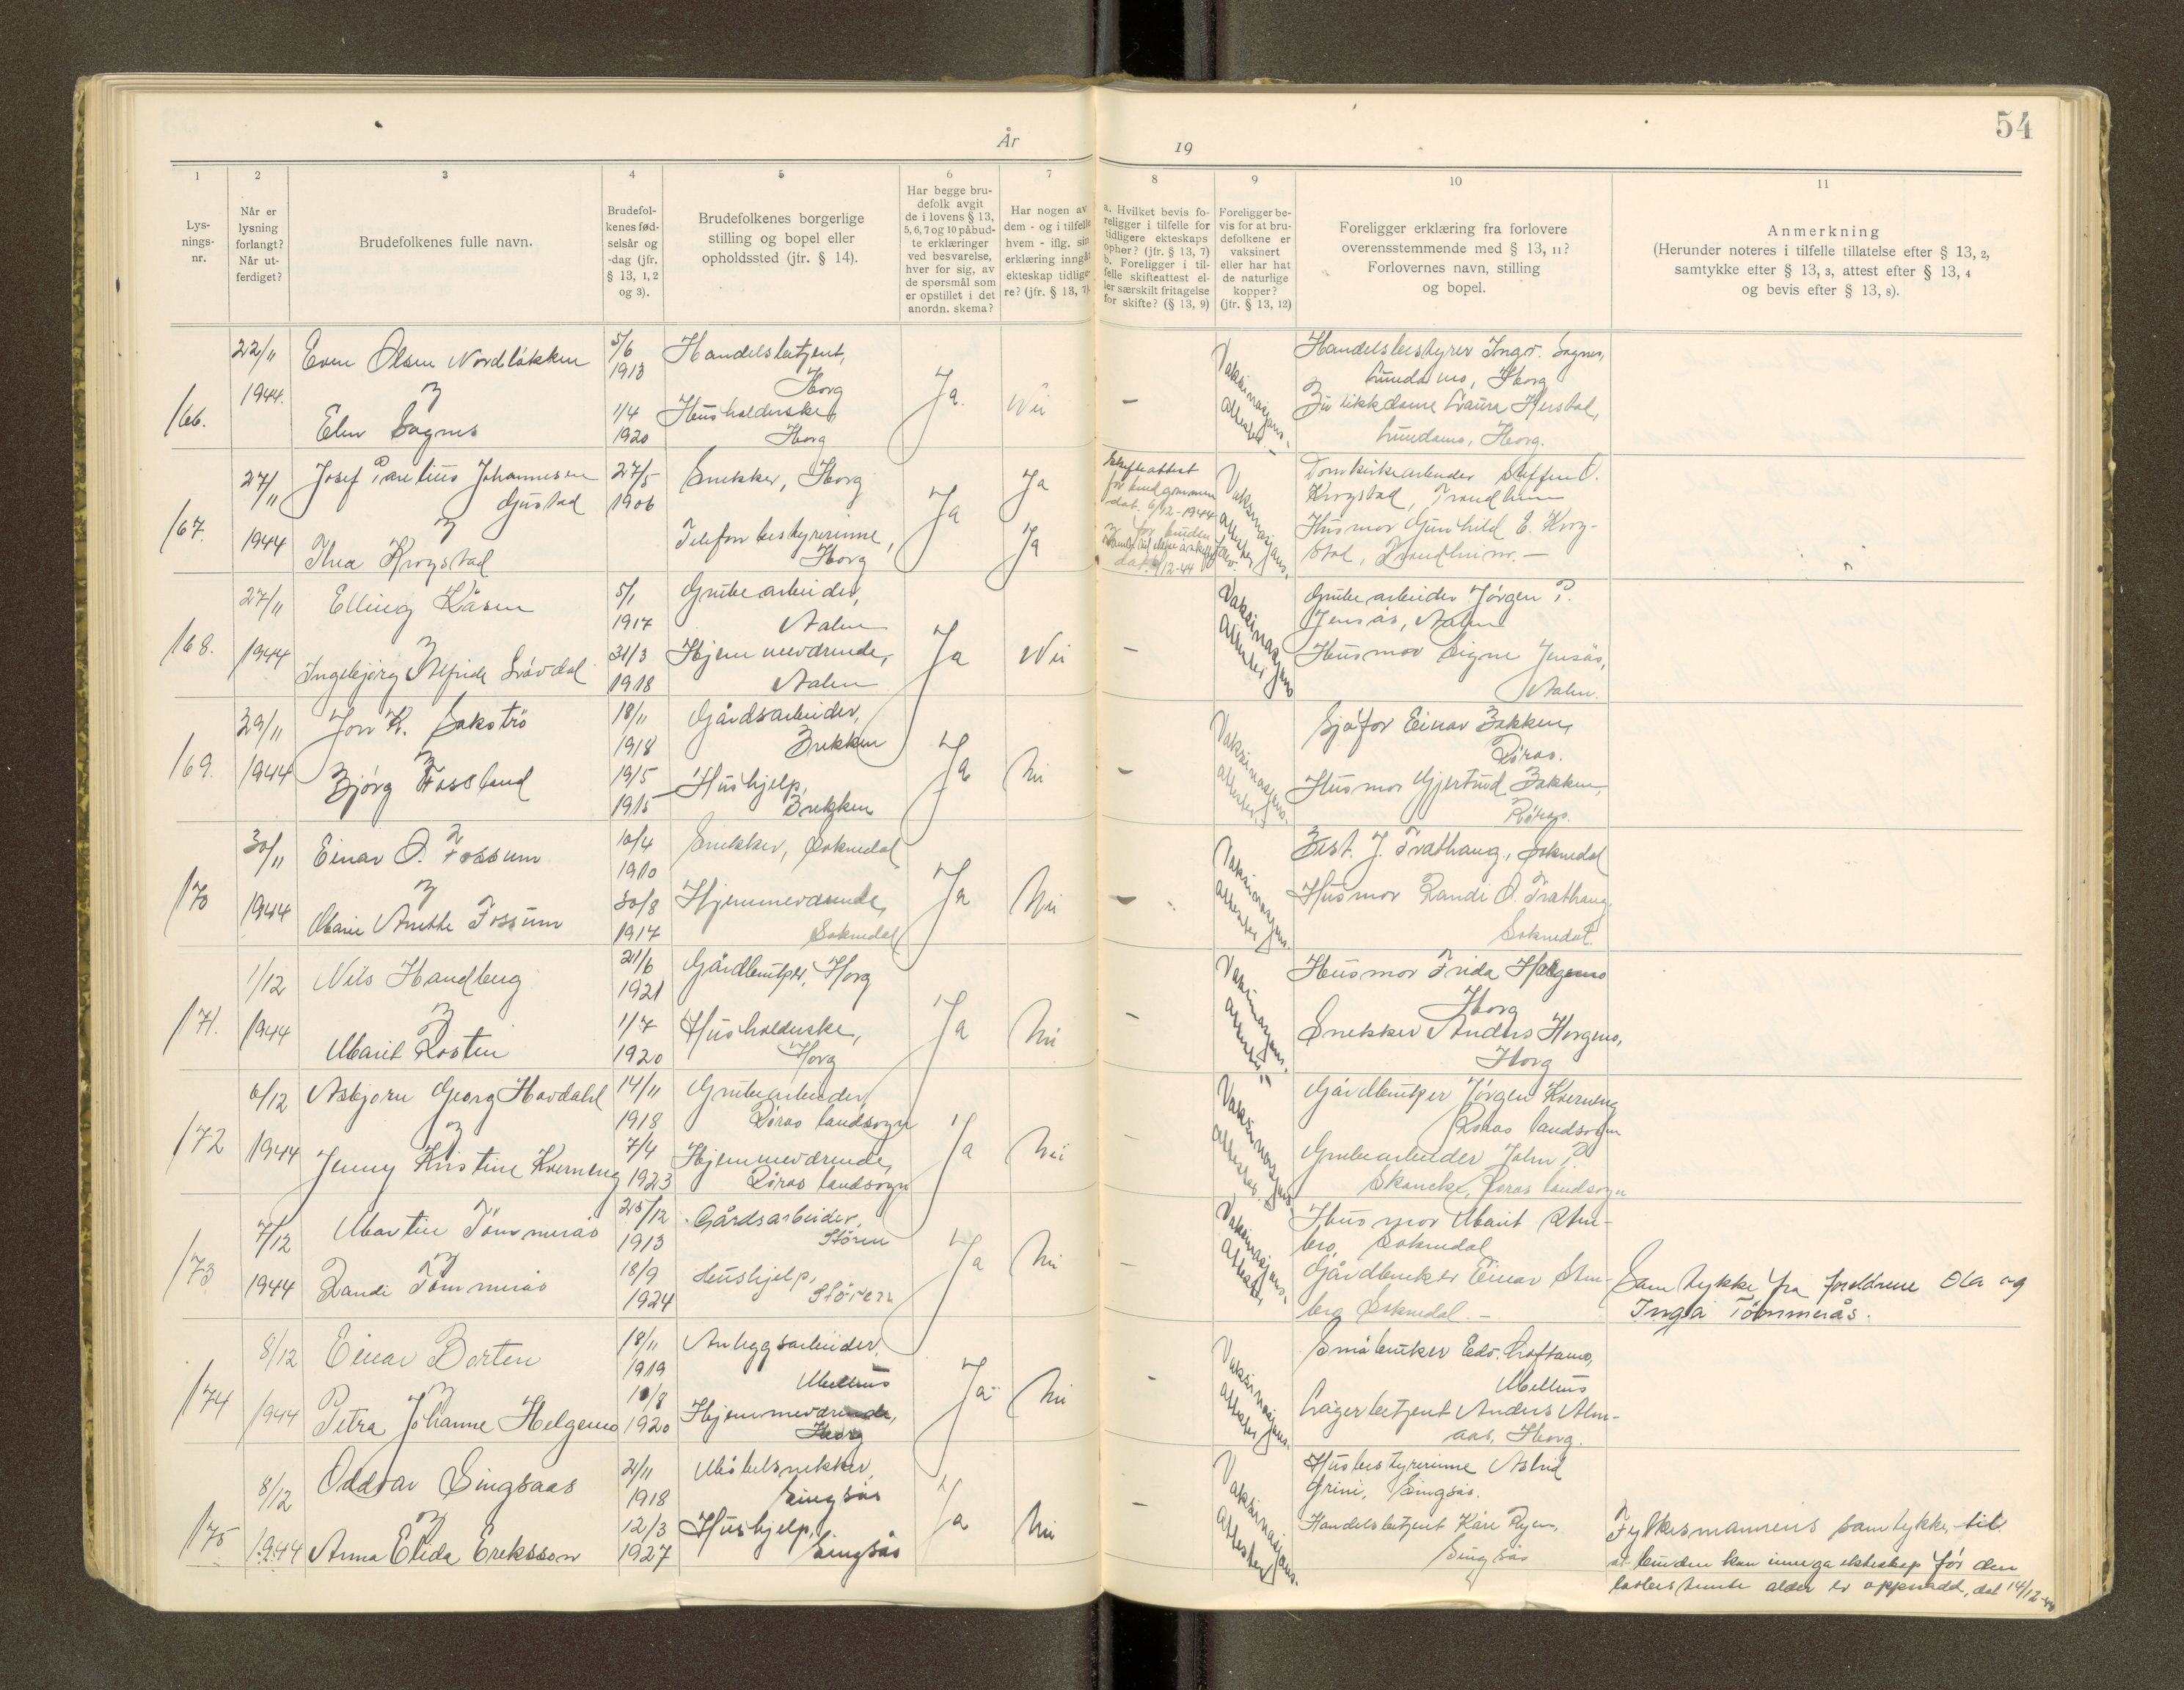 54
År
19
1
2
3
4
5
6
7
8
9
10
11
Lys-
nings-
nr.
Når er
lysning
forlangt?
Når ut-
ferdiget?
Brudefolkenes fulle navn.
Brudefol-
kenes fød-
selsår og
-dag (jfr.
§ 13, 1, 2
og 3).
Brudefolkenes borgerlige
stilling og bopel eller
opholdssted (jfr. § 14).
Har begge bru-
defolk avgit
de i lovens § 13,
5, 6, 7 og 10 påbud-
te erklæringer
ved besvarelse,
hver for sig, av
de spørsmål som
er opstillet i det
anordn. skema?
Har nogen av
dem - og i tilfelle
hvem - iflg. sin
erklæring inngått
ekteskap tidlige-
re? (jfr. § 13, 7).
a. Hvilket bevis fo-
religger i tilfelle for
tidligere ekteskaps
ophør? (jfr. § 13, 7)
b. Foreligger i til-
felle skifteattest el-
ler særskilt fritagelse
for skifte? (§ 13, 9)
Foreligger be-
vis for at bru-
defolkene er
vaksinert
eller har hat
de naturlige
kopper?
(jfr. § 13, 12)
Foreligger erklæring fra forlovere
overensstemmende med § 13, 11?
Forlovernes navn, stilling
og bopel.
Anmerkning
(Herunder noteres i tilfelle tillatelse efter § 13, 2,
samtykke efter § 13, 3, attest efter § 13, 4
og bevis efter § 13, 8).
166.
22/11
1944.
Even Olsen Nordløkken
og
Elen Sagnes
5/6
1913
1/4
1920
Handelsbetjent,
Horg
Husholderske,
Horg
Ja.
Nei
–
Vaksinasjons-
attester
Handelsbestyrer Ingv. Sagnes,
Lundamo, Horg
Butikkdame Laura
Lundamo, Horg.
167.
27/11
1944
Josef Parelius Johannesen
Gustad
og
Thea Krogstad
27/5
1906
Snekker, Horg
Telefonbestyrerinne,
Horg
Ja
Ja
Ja
Skifteattest
for brudgommen
dat. 6/12-1944
for bruden
Vaksinasjons-
attester
Domkirkearbeider Steffen O.
Krogstad, Trondheim
Husmor Gunhild E. Krog-
stad, Trondheim. –
168.
27/11
1944
Elling Kåsen
og
Ingebjørg Alfride Løvdal
5/1
1917
31/3
1918
Grubearbeider,
Aalen
Hjemmeværende,
Aalen
Ja
Nei
–
Vaksinasjons
attester
Grubearbeider Jørgen P.
Jensås, Aalen
Husmor Signe Jensås,
Aalen.
169.
29/11
1944
Jon K.
og
Bjørg Fossland
18/11
1918
19/5
1915
Gårdsarbeider,
Brekken
Hushjelp,
Brekken
Ja
Nei
–
Vaksinasjons-
attester
Sjåfør Einar Bakken,
Røros.
Husmor Gjertrud Bakken,
Røros.
170
30/11
1944
Einar O. Fossum
og
Marie Anette Fossum
10/4
1910
30/8
1917
Snekker, Soknedal
Hjemmeværende,
Soknedal
Ja
Nei
–
Vaksinasjons-
attester
Best. J. Træthaug, Soknedal
Husmor Randi O. Træthaug
Soknedal.
171.
1/12
1944
Nils Handberg
og
Marit Rostin
21/6
1921
1/7
1920
Gårdbruker, Horg
Husholderske,
Horg
Ja
Nei
–
Vaksinasjons-
attester
Husmor Frida
Horg
Snekker Anders Horgmo,
Horg
172
6/12
1944
Asbjørn Georg Hovdahl
og
Jenny Kristine Kverneng
14/11
1918
7/4
1923
Grubearbeider,
Røros landsogn
Hjemmeværende,
Røros landsogn
Ja
Nei
Vaksinasjons-
attester
Gårdbruker Jørgen Kverneng
Røros landsogn
Grubearbeider John P.
Skancke, Røros landsogn
173
7/12
1944
Martin Tømmerås
og
Randi Tømmerås
25/12
1913
18/9
1924
Gårdsarbeider,
Støren
Hushjelp,
Støren
Ja
Nei
–
Vaksinasjons-
attester
Husmor Marit Sten-
bro, Soknedal
Gårdbruker Einar Sten-
bro, Soknedal. –
Samtykke fra foreldrene Ola og
Inga Tömmerås.
174
8/12
1944
Einar Borten
og
Petra Johanne Helgemo
18/11
1919
10/8
1920
Anleggsarbeider,
Melhus
Hjemmeværende,
Horg
Ja
Nei
-
Vaksinasjons-
attester
Småbruker Edv. Loftamo,
Melhus
Lagerbetjent Anders Alm-
aas, Horg.
175
8/12
1944
Oddvar Singsaas
og
Anna Elida Eriksson
21/11
1918
12/3
1927
Møbelsnekker,
Singsås
Hushjelp,
Singsås
Ja
Nei
–
Vaksinasjons-
attester
Husbestyrerinne Astrid
Grini, Singsås.
Handelsbetjent Kåre Ryen,
Singsås
Fylkesmannens samtykke til
at bruden kan innega ekteskap før den
lovbestemte alder er oppnådd, dat 14/12-44